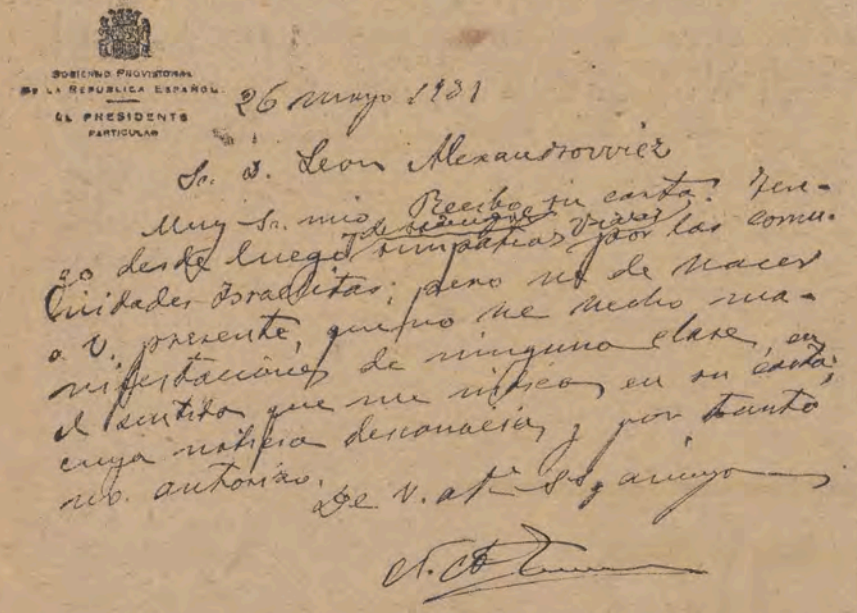 GOBIERNO PROVISIONAL
DE LA REPUBLICA ESPAÑOLA
EL PRESIDENTE
PARTICULAR
26 mayo 1931
Sr. D. Leon Alexandrowiez
Muy Sr. mio. Recibo su carta. Ten-
go desde luego y de siempre simpatias vivas por las comu-
nidades israelitas; pero he de hacer
a V. presente, que no he hecho ma-
nifestaciones de ninguna clase, en
el sentido que me indica, en su carta;
cuya noticia desconocia, y por tanto
no autorizo.
De V. atº ss, amigo